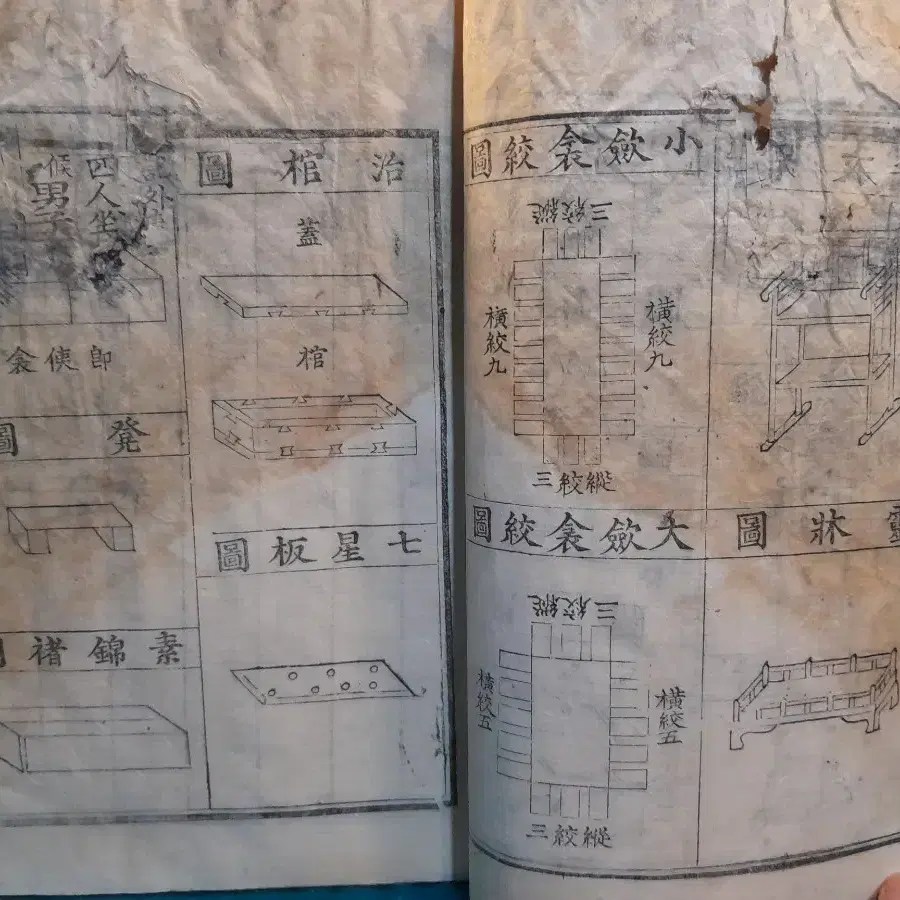 靈牀圖
小歛衾絞圖
縱絞三
橫絞九
橫絞九
縱絞三
大歛衾絞圖
縱絞三
橫絞五
橫絞五
縱絞三
治棺圖
蓋
棺
七星板圖
外
四人坐
候男子
即侇衾
凳圖
素錦褚